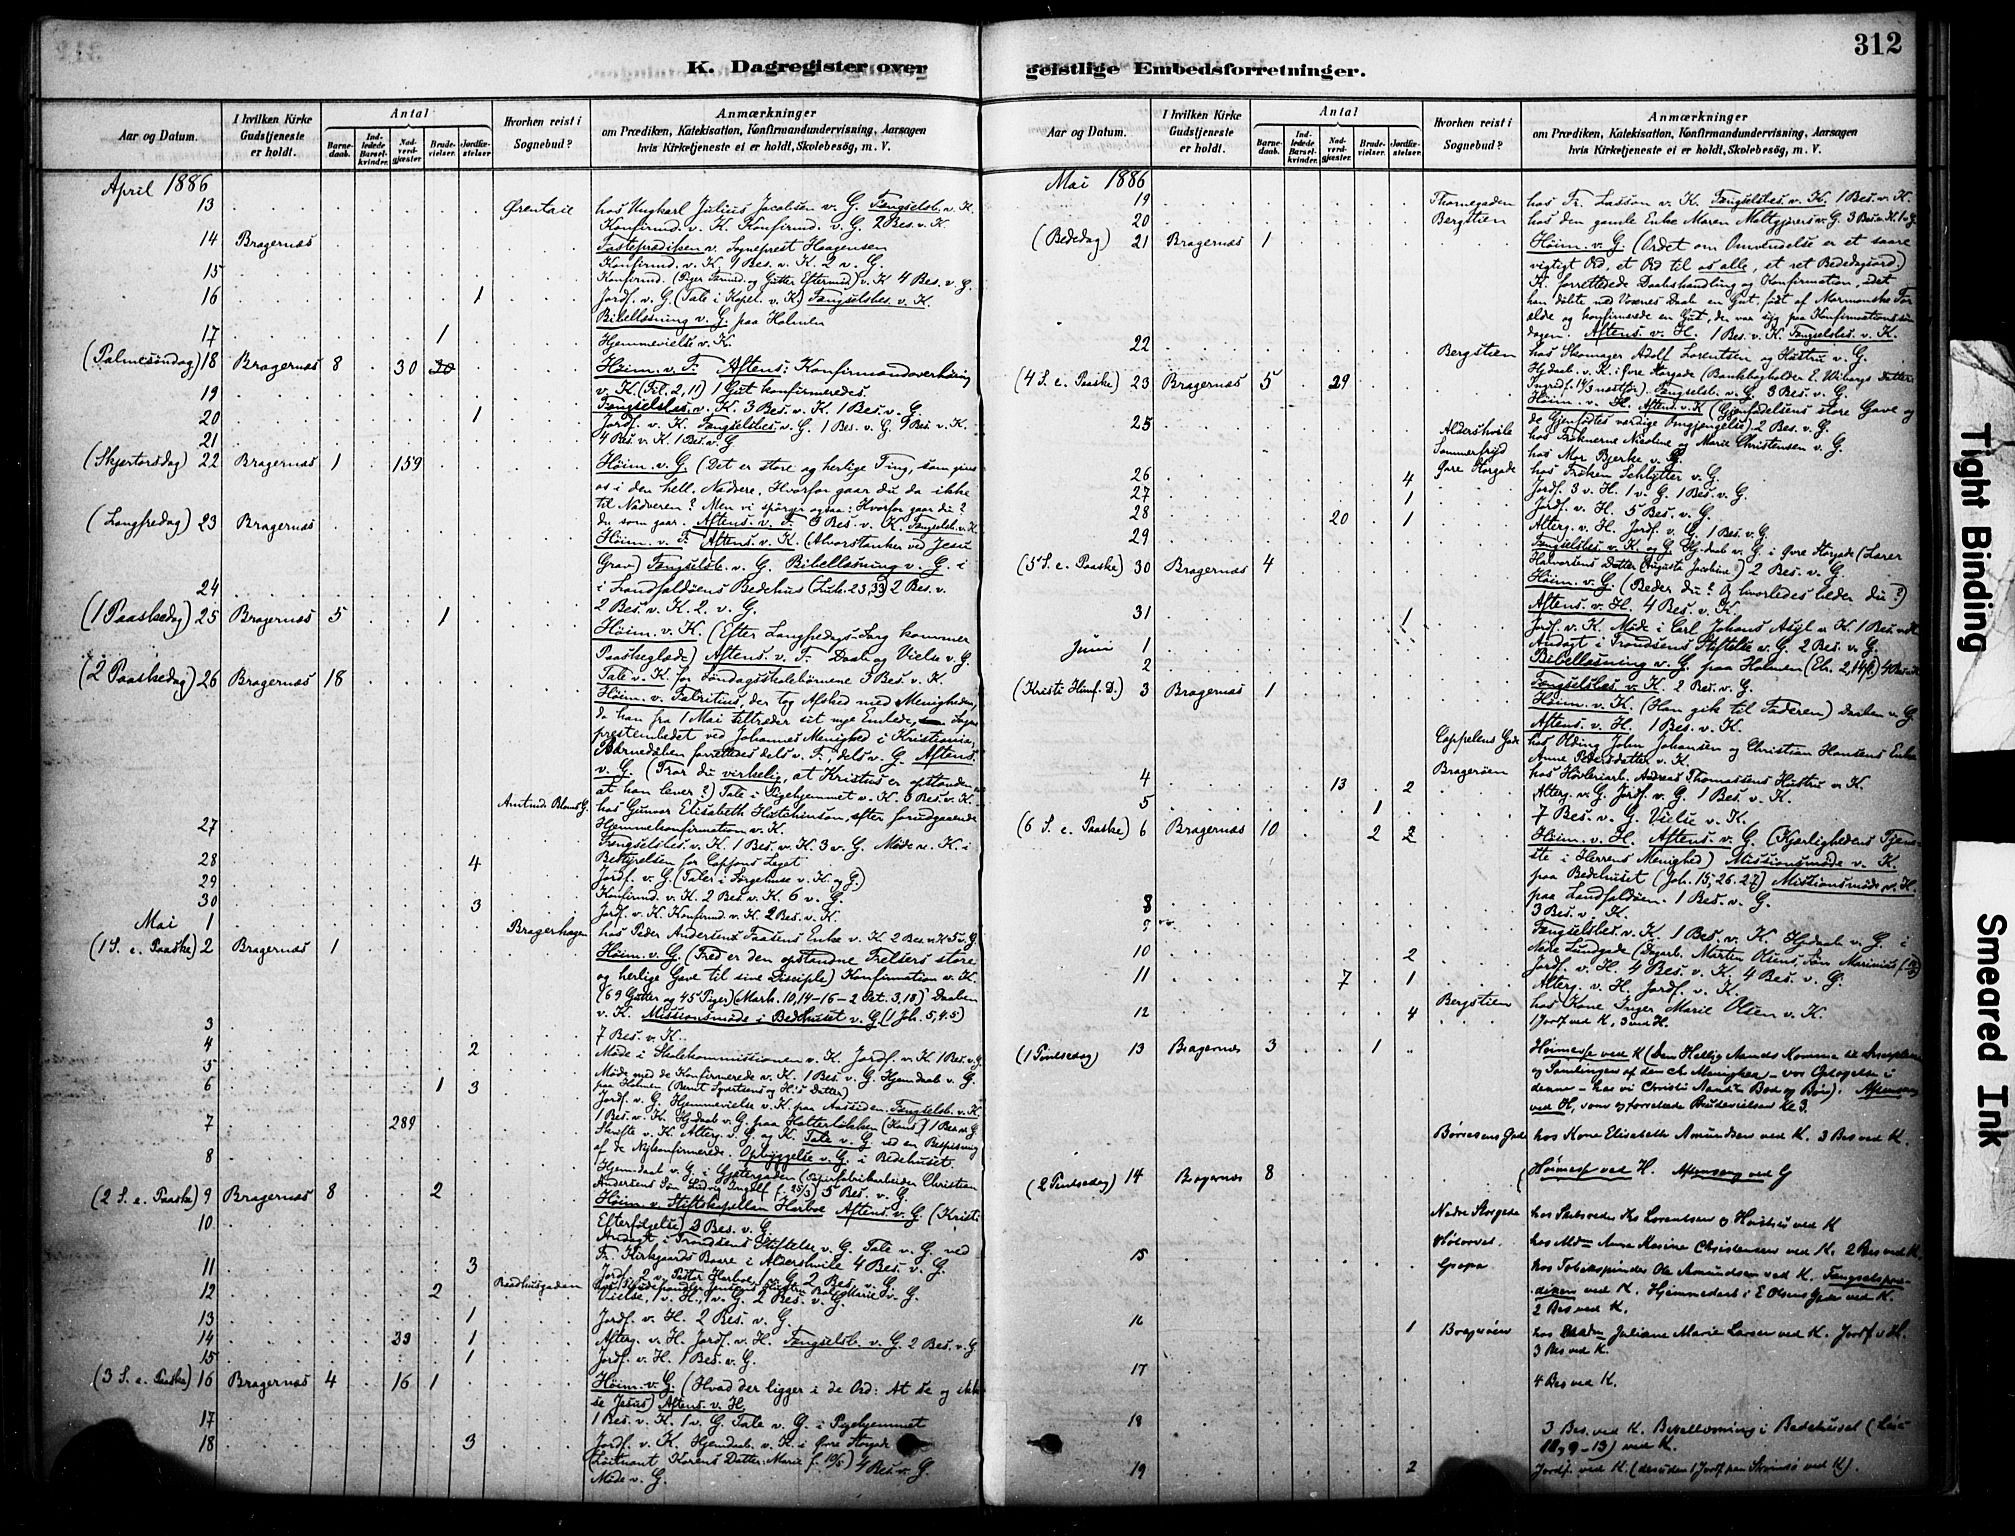 312
K. Dagregister over
Aar og Datum.
I hvilken Kirke Gudstjeneste er holdt.
Antal
Barnedaab.
Indledede Barselkvinder.
Nadverdgjæster.
Brudevielser.
Jordfæstelser
Hvorhen reist i Sognebud?
Anmærkninger
om Prædiken, Katekisation, Konfirmandundervisning, Aarsagen
hvis Kirketjeneste ei er holdt, Skolebesög, m. V.
April 1886
13 Ørentail hos Ungkarl Julius Jacobsen v. G. Fængselsb. v. K.
Konfirmd. v. K. Konfirmd. v. G. 2 Bes. v. K.
14 Bragernæs Fasteprædiken v. Sogneprest Haagensen
Konfirmd. v. K. 9 Bes. v. K. 2 v. G.
15 Konfirmd. (Piger Formid. og Gutter Eftermid.) v. K. 4 Bes. v. G.
16 1 Jordf. v. G. (Tale i Kapel. v. K.) Fængselsbes. v. K.
Bibellæsning v. G. paa Holmen
17 1 Hjemmevielse v. K.
(Palmesöndag) 18 Bragernæs 8 30 Höim. v. F. Aftens: Konfirmandoverhöring
v. K. (Fil. 2,11) 1 Gut konfirmeredes.
19 Fængselsbes. v. K. 3 Bes. v. K. 1 Bes. v. G.
20 1 Jordf. v. K. Fængselsbes. v. G. 1 Bes. v. G. 9 Bes. v. K.
21 4 Bes. v. K. 1 Bes. v. G
(Skjertorsdag) 22 Bragernæs 1 159 Höim. v. G. (Det er store og herlige Ting, som gives
os i den hell. Nadvere. Hvorfor gaar du da ikke
til Nadveren? Men vi spörger ogsaa: Hvorfor gaar du?
du som gaar. Aftens. v. F. 3 Bes. v. K. Fængselsb. v. K.
(Langfredag) 23 Bragernæs Höim. v. F. Aftens. v. K. (Alvorstanker ved Jesu
Grav) Fængselsb. v. G. Bibellæsning v. G. i
i Landfaldöens Bedehus (Luk. 23,33) 2 Bes. v.
24 2 Bes. v. K. 2. v. G.
(1 Paaskedag) 25 Bragernæs 5 1 Höim. v. K. (Efter Langfredags Sorg kommer
Paaskeglæde) Aftens. v. F. Daab og Vielse v. G.
Tale v. K. for Söndagsskolebörnene 3 Bes. v. K.
(2 Paaskedag) 26 Bragernæs 18 Höim. v. Fabritius, der tog Afsked med Menigheden,
da han fra 1 Mai tiltræder sit nye Embede, Sogne
prestembedet ved Johannes Menighed i Kristiania.
Barnedaaben forrettedes dels v. F., dels v. G. Aftens.
v. G. (Tror du virkelig, at Kristus er opstanden
at han lever?) Tale i Pigehjemmet v. K. 3 Bes. v. K.
Amtmd Bloms G. hos Gunvor Elisabeth Hutchinson, efter forudgaaende
Hjemmekonfirmation v. K.
27 Fængselsbes. v. K. 1 Bes. v. K. 3 v. G. Möde v. K. i
Bestyrelsen for Coppens Leget
28 4 Jordf. v. G. (Taler i Sörgehuse v. K. og G.)
29 Konfirmd. v. K. 2 Bes. v. K. 6 v. G.
30 3 Jordf. v. K. Konfirmd. v. K. 2 Bes. v. K.
Mai 1 Bragerhagen hos Peder Andersens Faasens Enke v. K. 2 Bes. v. K. 5 v. G
(1 S. e. Paaske) 2 Bragernæs 1 Höim. v. G. (Fred er den opstandne Frelsers store
og herlige Gave til sine Disciple) Konfirmation v. K.
(69 Gutter og 45 Piger) (Mark. 10,14-16 - 2 Pet. 3,18) Daaben
v. K. Missionsmöde i Bedehuset v. G. (1 Joh. 5,4.5)
3 7 Bes. v. K.
4 2 Möde i Skolekommissionen v. K. Jordf. v. K. 1 Bes. v. G.
5 Möde med de Konfirmerede v. K. 1 Bes. v. G. Hjemdaab v. G.
paa Holmen
6 1 3 Jordf. v. G. Hjemmevielse v. K. paa Aassiden. Fængselsb. v. K.
1 Bes. v. K. Hjdaab v. G. paa 1 Bes. v. G.
7 289 Skrifte v. K. Alterg. v. G. og K. Tale v. G. ved en Bespisning
af de Nykonfirmerede. Opbyggelse v. G. i Bedehuset.
8 Hjemdaab v. G. i Gjetergaden (Papirfabrikarbeider Christian
Andersens Sön Ludvig Ingolf f. 25/3) 5 Bes. v. G.
(2 S. e. Paaske) 9 Bragernæs 8 2 Höim. v. Stiftskapellan Harboe Aftens. v. G. (Kristi
Efterfölgelse) 3 Bes. v. G.
10 Andagt i Trondsens Stiftelse v. G. Tale v. G. ved
Fr. Kirkgaards Baare i Aldershvile 4 Bes. v. G.
11 3 Jordf. 2 v. Pastor Harboe, 1 v. G. 2 Bes. v. G.
12 2 Raadhusgaden Vielse, 1 v. H., 1 v. G. 2 Bes. v. G.
13 1 Jordf. v. H. 2 Bes. v. G.
14 33 1 Alterg. v. H. Jordf. v. H. Fængselsb. v. G. 2 Bes. v. G
15 1 Jordf. v. H. 1 Bes. v. G.
(3 S. e. Paaske) 16 Bragernæs 4 16 1 Höim. v. G. (Hvad der ligger i de Ord: At se og ikke
se Jesus) Aftens. v. H.
17 1 Bes. v. K. 1 v. G. Tale v. G. i Pigehjemmet
18 3 Jordf. v. K. Hjemdaab. v. K. i Övre Storgade
(Löitnant Korens Datter: Marie f. 10/5) 4 Bes. v. G.
Möde v. G.
geistlige Embedsforretninger.
Aar og Datum.
I hvilken Kirke Gudstjeneste er holdt.
Antal
Barnedaab.
Indledede Barselkvinder.
Nadverdgjæster.
Brudevielser.
Jordfæstelser.
Hvorhen reist i Sognebud?
Anmærkninger
om Prædiken, Katekisation, Konfirmandundervisning, Aarsagen
hvis Kirketjeneste ei er holdt, Skolebesög, m. V.
Mai 1886
19 Thornegaden hos Fr. Lasson v. K. Fængselsbes. v. K. 1 Bes. v. K.
20 Bergstien hos den gamle Enke Maren v. G. 3 Bes. v. K. 1 v. G.
(Bededag) 21 Bragernæs 1 Höim. v. G. (Ordet om Omvendelse er et saare
vigtigt Ord, et Ord til os alle, et ret Bededagsord.)
K. forrettede Daabshandling og Konfirmation, idet
han döbte ved Voxnes Daab en Gut, födt af Mormonske For
ældre og konfirmerede en Gut, der var syg paa Konfirmationssön
dagen. Aftens. v. H. 1 Bes. v. K. Fængselsbes. v. K.
22 Bergstien hos Skomager Adolf Lorentsen og Hustru v. G.
Hjdaab. v. K. i Övre Storgade (Bankbogholder E. Wibergs Datter:
Ingrid f. 14/3 Fængselsb. v. G. 3 Bes. v. G.
(4 S. e. Paaske) 23 Bragernæs 5 29 Höim. v. H. Aftens. v. K. (Gjenfødelsens store Gave og
de Gjenfödtes værdige Omgjængelse) 2 Bes. v. G.
25 Aldershvile hos Fröknerne Nicoline og Marie Christensen v. G.
Sommerfryd hos Mor Bjerke v. G.
Övre Storgade hos Fröken Schlytter v. G.
26 4 Jordf. 3 v. H. 1 v. G. 1 Bes. v. G.
27 1 Jordf. v. H. 5 Bes. v. G.
28 20 1 Alterg. v. H. Jordf. v. G. 1 Bes. v. G.
29 Fængselsbes. v. K. og G. Hj.daab v. G. i Övre Storgade (Lærer
Halvorsens Datter Augusta Jacobine) 2 Bes. v. G.
(5 S. e. Paaske) 30 Bragernæs 4 Höim. v. G. (Beder du? Og hvorledes beder du?)
Aftens. v. H. 4 Bes. v. K.
31 1 Jordf. v. K. Möde i Carl Johans Asyl v. K. 1 Bes. v. K
Juni 1 Andagt i Trondsens Stiftelse v. G. 2 Bes. v. G.
2 Bibellæsning v. G. paa Holmen (Eb. 2,14fl.) 4 Bes. v. K
Fængselsbes. v. K. 2 Bes. v. G.
(Kristi Himf. D.) 3 Bragernæs 1 Höim. v. K. (Han gik til Faderen) Daaben v. G
Aftens. v. H. 1 Bes. v. K.
Cappelens Gade hos Olding John Johansen og Christian Hansens Enke
Anne Pedersdatter v. K.
4 13 2 Bragerøen hos Hövleriarb. Andreas Thomassens Hustru v. K.
Alterg. v. G. Jordf. v. G. 1 Bes. v. K.
5 1 7 Bes. v. G. Vielse v. K.
(6 S. e. Paaske) 6 Bragernæs 10 2 2 Höim. v. H. Aftens. v. G. (Kjærlighedens Tjene-
ste i Herrens Menighed) Missionsmöde v. K.
paa Bedehuset (Joh. 15,26.27) Missionsmöde v. H.
paa Landfaldöen. 1 Bes. v. G.
8 3 Bes. v. K.
9 Fængselsbes. v. K. 1 Bes. v. K. Hjdaab v. G. i
Nedre Lundgade (Dagarb. Martin Olsens Sön Marinius
10 2 Jordf. v. H. 4 Bes. v. K. 4 Bes. v. G.
11 7 1 Alterg. v. H. Jordf. v. K.
12 4 Bergstien hos Kone Inger Marie Olsen v. K.
1 Jordf ved K, 3 ved H.
(1 Pintsedag) 13 Bragernæs 3 1 Höimesse ved K (Den Hellig Aands Komme til Disciplene
og Samlingen af den chr. Menighed - vor Optagelse i
denne - har vi Christi Aand? Bod og Bön). Aftensang
ved H, som og forrettede Brudevielsen Kl 3.
Börresens Gade hos Kone Elisabeth Amundsen ved K. 3 Bes ved K.
(2 Pintsedag) 14 Bragernæs 8 Höimesse ved H. Aftensang ved G
Nedre Storgade hos Skibsreder Lorentsen og Hustru ved K
15 Hötorvet. hos Anne Marine Christensen ved K. 2 Bes ved K.
hos Tobakspinder Ole Amundsen ved K. Fængselspræ-
diken ved K. Hjemmedaab i E Olsens Gade ved K.
2 Bes ved K.
16 1 Bragerøen hos Juliane Marie Larsen ved K. Jordf v. H.
3 Bes ved K.
17 4 Bes ved K.
18 3 Bes. ved K. Bibellæsning i Bedehuset (Luc
18,9-13) ved K.
19 2 Jordf. ved K. (desuden 1 Jordf paa Strömsö ved K).
Tight Binding
Smeared Ink